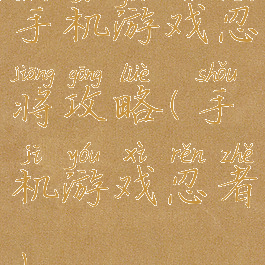 手机游戏忍
jiàng gōng lüè shǒu
将攻略(手
jī yóu xì rěn zhě
机游戏忍者
)